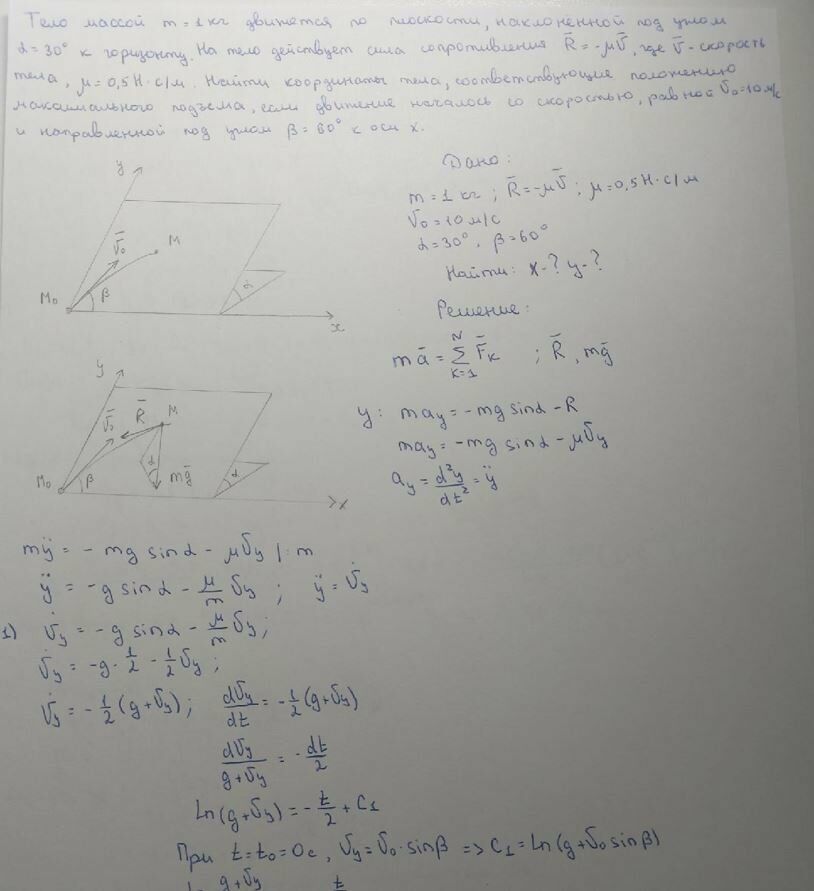 Тело массой m = 1 кг движется по плоскости, наклоненной под углом
α = 30° к горизонту. На тело действует сила сопротивления R̄ = -μv̄, где v̄ - скорость
тела, μ = 0,5 Н·с/м. Найти координаты тела, соответствующие положению
максимального подъема, если движение началось со скоростью, равной v₀=10 м/с
и направленной под углом β = 60° к оси x.
Дано:
m = 1 кг ; R̄ = -μv̄ ; μ = 0,5 Н·с/м
v₀ = 10 м/с
α = 30°, β = 60°
Найти: x-? y-?
Решение:
y
v̄₀
M
M₀
β
α
x
mā = Σ F̄ₖ ; R̄, mḡ
N
k=1
y
v̄₀
R̄
M
M₀
β
α
mḡ
α
x
y: may = -mg sinα - R
may = -mg sinα - μvy
ay = d²y/dt² = ÿ
mÿ = - mg sinα - μvy |: m
ÿ = -g sinα - μ/m vy ; ÿ = v̇y
1) v̇y = -g sinα - μ/m vy;
v̇y = -g· 1/2 - 1/2 vy ;
v̇y = - 1/2 (g+vy) ; dvy/dt = - 1/2 (g+vy)
dvy/(g+vy) = - dt/2
Ln(g+vy) = - t/2 + C₁
При t = t₀ = 0c, vy = v₀·sinβ => C₁ = Ln(g+v₀ sinβ)
g+vy t